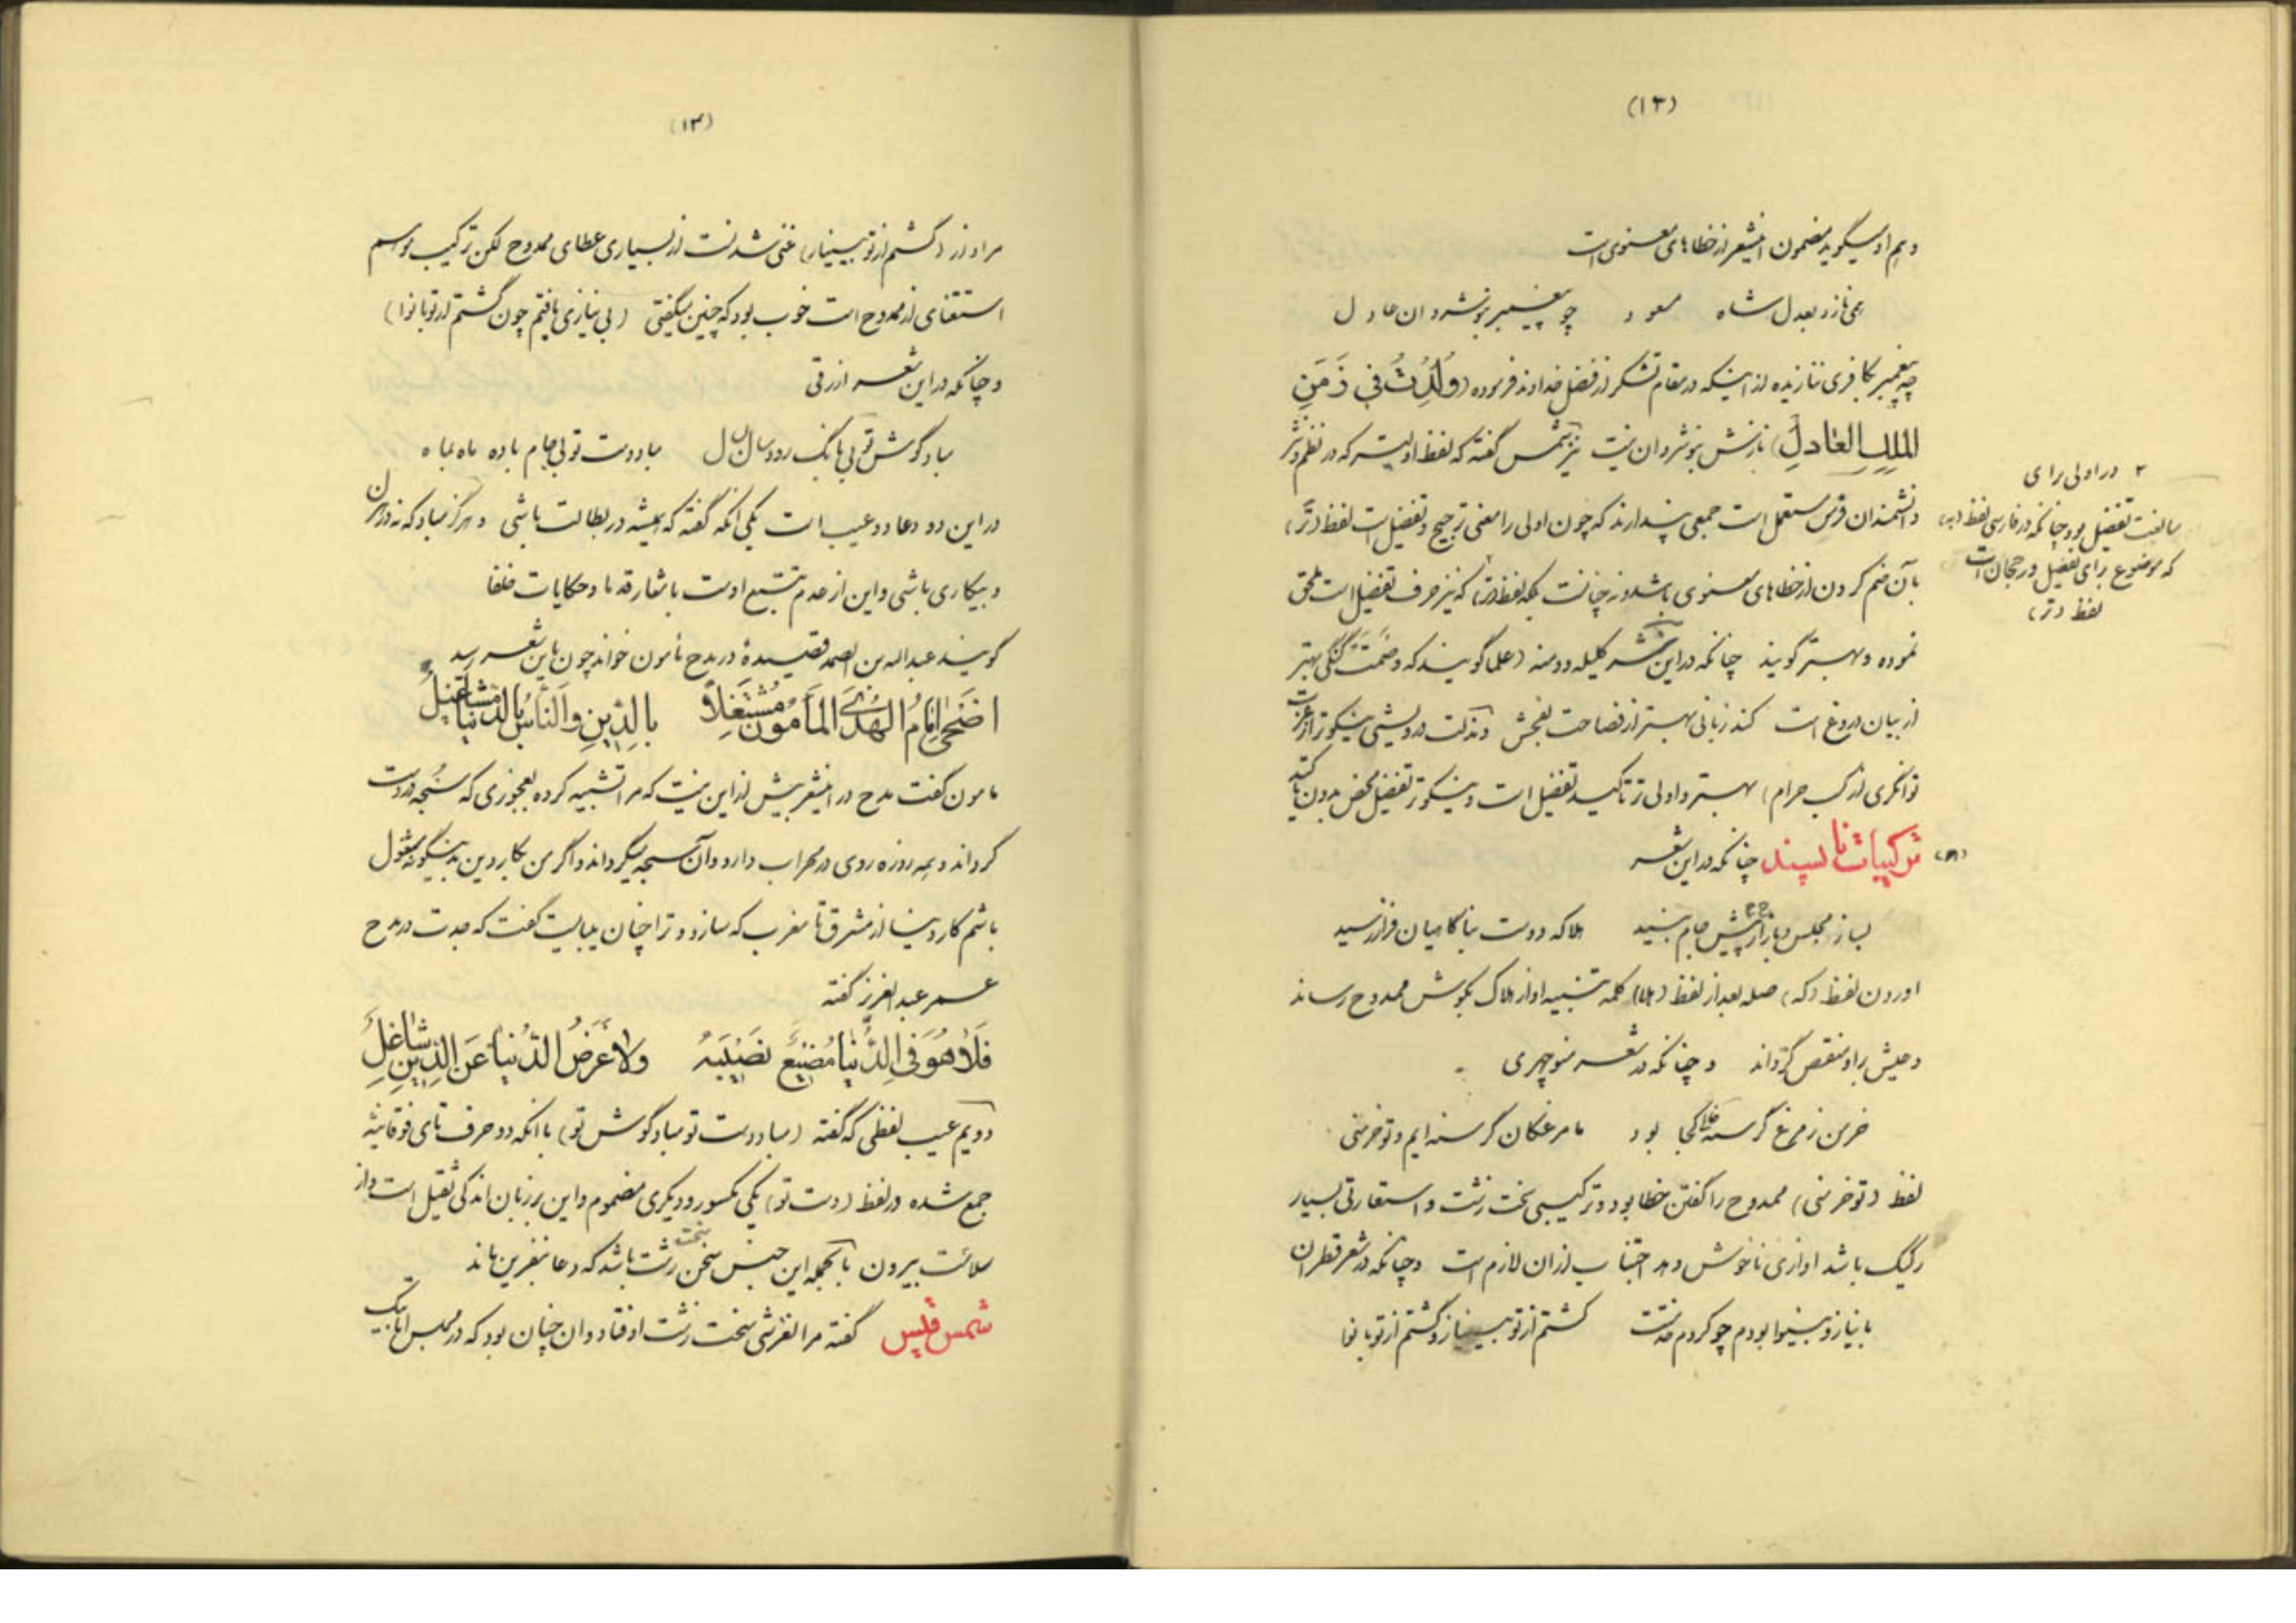 (۱۲)
و هم او میگوید مضمون اینشعر از خطاهای معنوی است
همی نازد بعدل شاه مسعود چو پیغمبر بنوشروان عادل
چه پیغمبر بکافری ننازیده از اینکه در مقام تشکر از فضل خداوند فرموده (وُلِدْتُ فی زَمَنِ
المَلِکِ العَادِلِ) نازش بنوشروان نیست نیز شمس گفته که لفظ اولیتر که در نظم و نثر
دانشمندان فرس مستعمل است جمعی پندارند که چون اولی را معنی ترجیح و تفضیل است لفظ (تر)
بآن ضم کردن از خطاهای معنوی باشد و نه چنانست بلکه لفظ (تر) که نیز حرف تفضیل است ملحق
نموده و بهتر گویند چنانکه در این نثر کلیله و دمنه (علما گویند که وصمت گنگی بهتر
از بیان دروغ است کند زبانی بهتر از فصاحت بفحش و مذلت درویشی نیکوتر از عزت
توانگری از کسب حرام) بهتر و اولی تر تاکید تفضیل است و نیکوتر تفضیل محض بدون تاکید
ترکیبات ناپسند چنانکه در این شعر
بساز مجلس و باز آر پیش جام نبید هلا که دوست بناگاهیان فراز رسید
اوردن لفظ (که) صله بعد از لفظ (هلا) کلمه تنبیه اواز هلاک بگوش ممدوح رساند
و عیش براو منغص گرداند و چنانکه در شعر منوچهری
خرمن ز مرغ گرسنه خالی کجا بود ما مرغکان گرسنه ایم و تو خرمنی
لفظ (تو خرمنی) ممدوح را گفتن خطا بود و ترکیبی سخت زشت و استعارتی بسیار
رکیک باشد اوازی ناخوش دهد اجتناب از ان لازم است وچنانکه در شعر قطران
با نیاز و بینوا بودم چو کردم خدمتت گشتم از تو بینیاز و گشتم از تو با نوا
۲ در اولی برای
مبالغت تفضیل بود چنانکه در فارسی لفظ (به)
که موضوع برای تفضیل و رجحان است
لفظ (تر)
(۱۳)
مراد از (گشتم از تو بینیاز) غنی شدنست از بسیاری عطای ممدوح لکن ترکیب موهم
استغنای از ممدوح است خوب بود که چنین میگفتی (بی نیازی یافتم چون گشتم از تو با نوا)
و چنانکه در این شعر ازرقی
مباد گوش تو بی بانگ رود سال بسال مباد دست تو بی جام باده ماه بماه
در این دو دعا دو عیب است یکی انکه گفته که همیشه در بطالت باشی و هرگز مباد که نه در لهو
و بیکاری باشی و این از عدم تتبع اوست باشعار قدما و حکایات خلفا
گویند عبدالله بن الصمه قصیدهٔ در مدح مامون خواند چون باین شعر رسید
اضحیٰ اِمَامُ الهُدَی المَأمُونُ مُشْتَغِلاً بِالدِّینِ وَالنَّاسُ بِالدُّنیَا مَشَاغِیلُ
مامون گفت مدح در اینشعر بیش از این نیست که مرا تشبیه کرده بعجوزی که سبحه در دست
گرداند و همه روزه روی در محراب دارد و آن سبحه میگرداند و اگر من بکار دین بدینگونه مشغول
باشم کار دنیا از مشرق تا مغرب که سازد و ترا چنان میبایست گفت که جدت در مدح
عمر عبدالعزیز گفته
فَلاٰ هُوَ فِی الدُّنْیَا مُضِیعٌ نَصِیبَهُ وَلاٰ عَرَضُ الدُّنْیَا عَنِ الدِّینِ شَاغِلُ
دویم عیب لفظی که گفته (مباد دست تو مباد گوش تو) با انکه دو حرف تای فوقانیه
جمع شده در لفظ (دست تو) یکی مکسور و دیگری مضموم و این بر زبان اندکی ثقیل است و از
سلاست بیرون بالجمله این جنس سخن سخت زشت باشد که دعا بنفرین ماند
شمس قیس گفته مرا لغزشی سخت زشت اوفتاد و ان چنان بود که در مجلس اتابیک